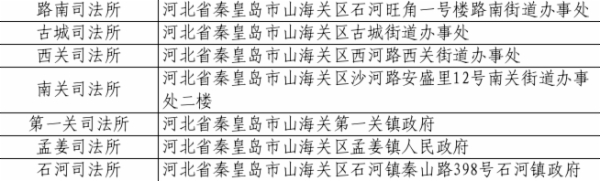 路南司法所 河北省秦皇岛市山海关区石河旺角一号楼路南街道办事处
古城司法所 河北省秦皇岛市山海关区古城街道办事处
西关司法所 河北省秦皇岛市山海关区西河路西关街道办事处
南关司法所 河北省秦皇岛市山海关区沙河路安盛里12号南关街道办事
处二楼
第一关司法所 河北省秦皇岛市山海关第一关镇政府
孟姜司法所 河北省秦皇岛市山海关区孟姜镇人民政府
石河司法所 河北省秦皇岛市山海关区石河镇秦山路398号石河镇政府